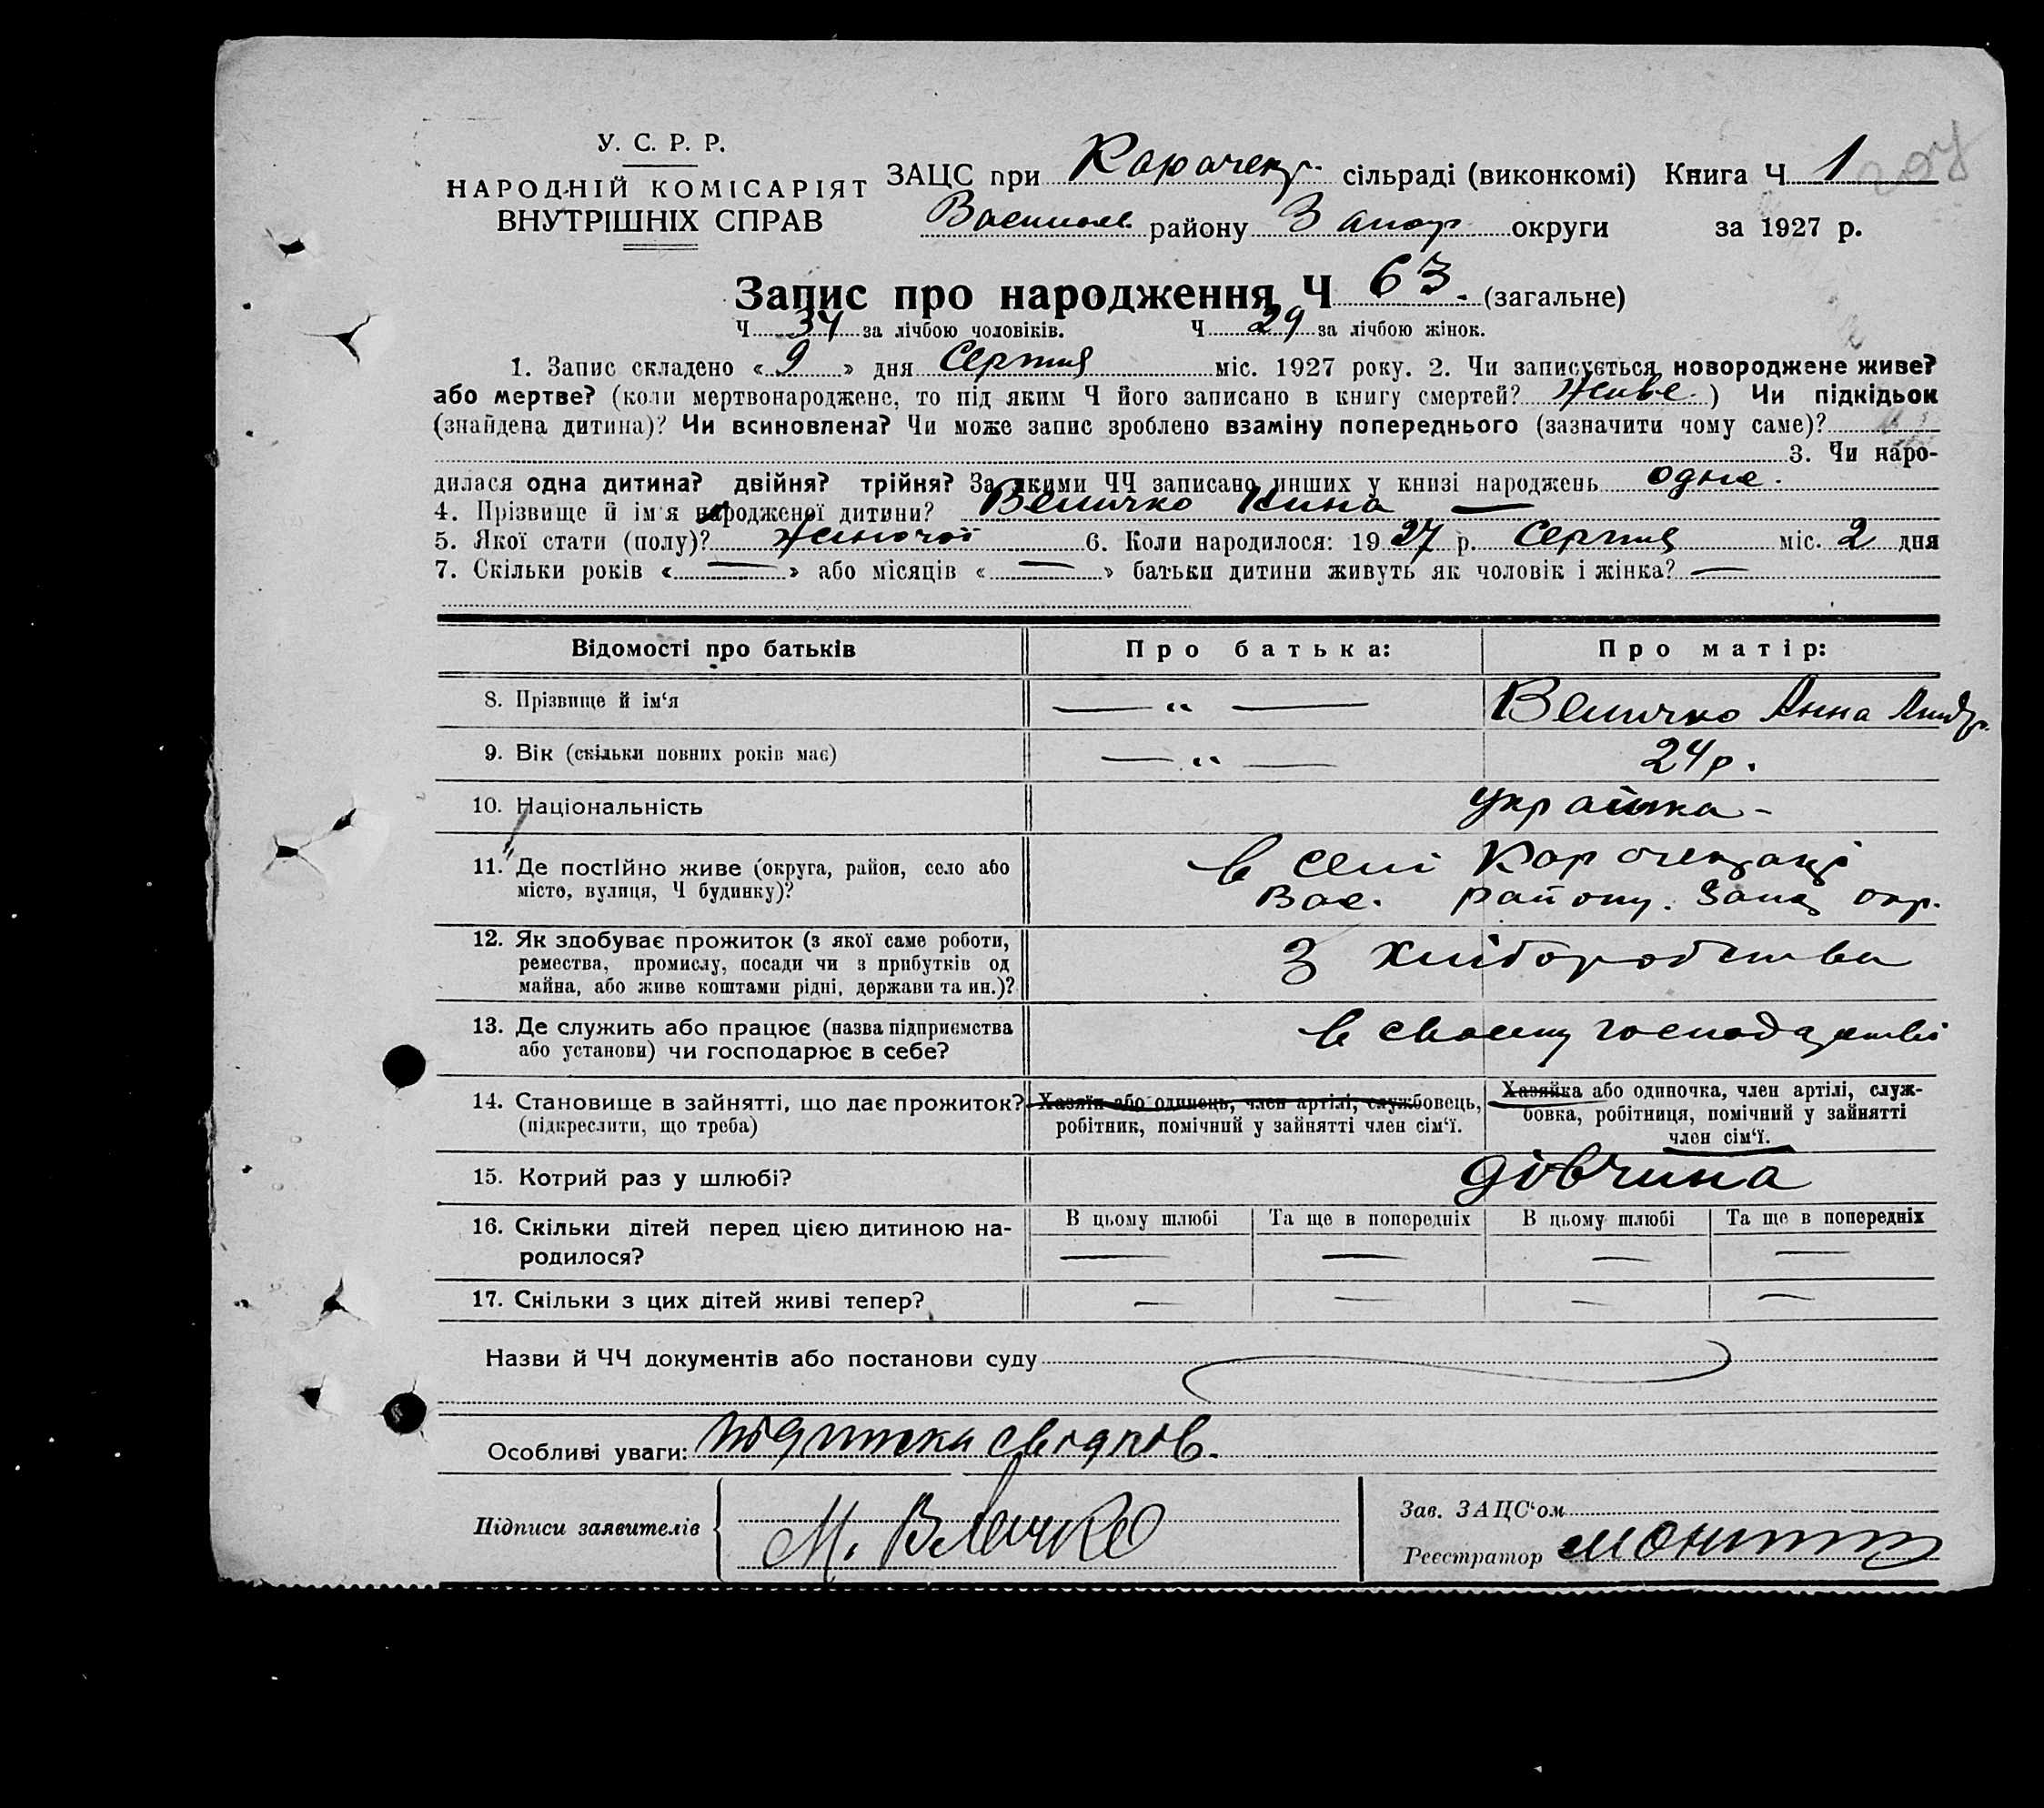 У. С. Р. Р.
НАРОДНІЙ КОМІСАРІЯТ
ВНУТРІШНІХ СПРАВ
ЗАЦС при Карачекр. сільраді (виконкомі) Книга Ч 1
Василів. району Запор округи за 1927 р.
Запис про народження Ч 63. (загальне)
Ч 34 за лічбою чоловіків. Ч 29 за лічбою жінок.
1. Запис складено « 9 » дня Серпня міс. 1927 року. 2. Чи записується новороджене живе?
або мертве? (коли мертвонароджене, то під яким Ч його записано в книгу смертей? Живе.) Чи підкідьок
(знайдена дитина)? Чи всиновлена? Чи може запис зроблено взаміну попереднього (зазначити чому саме)?
3. Чи наро-
дилася одна дитина? двійня? трійня? За якими ЧЧ записано инших у книзі народжень одне.
4. Прізвище й ім'я народженої дитини? Величко Нина —
5. Якої стати (полу)? Жіночої 6. Коли народилося: 1927 р. Серпня міс. 2 дня
7. Скільки років « — » або місяців « — » батьки дитини живуть як чоловік і жінка? —
Відомості про батьків Про батька: Про матір:
8. Прізвище й ім‘я — „ — Величко Анна
9. Вік (скільки повних років має) — „ — 24 р.
10. Національність Українка -
11. Де постійно живе (округа, район, село або
місто, вулиця, Ч будинку)?
в селі
Вас. району. Запор окр.
12. Як здобуває прожиток (з якої саме роботи,
ремества, промислу, посади чи з прибутків од
майна, або живе коштами рідні, держави та ин.)?
З хліборобства
13. Де служить або працює (назва підприємства
або установи) чи господарює в себе?
в своему господарстві
14. Становище в зайнятті, що дає прожиток?
(підкреслити, що треба)
Хазяїн або одинець, член артілі, службовець,
робітник, помічний у зайнятті член сім‘ї.
Хазяйка або одиночка, член артілі, служ-
бовка, робітниця, помічний у зайнятті
член сім‘ї.
15. Котрий раз у шлюбі? дівчина
16. Скільки дітей перед цією дитиною на-
родилося?
В цьому шлюбі Та ще в попередніх В цьому шлюбі Та ще в попередніх
— — — —
17. Скільки з цих дітей живі тепер? — — — —
Назви й ЧЧ документів або постанови суду
Особливі уваги: підписка свідків.
Підписи заявителів М. Величко
Зав. ЗАЦС‘ом
Реєстратор